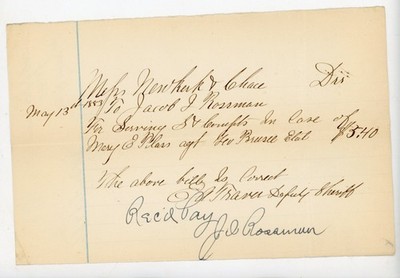 Messrs Newkirk & Chace Dr
May 13th To Jacob I Rossman
For Serving S & Compts In Case of
Mary E Plass agt Geo et al $5.40
The above bill Is Correct
Traver Deputy Sheriff
Rec'd Pay
J. I. Rossman